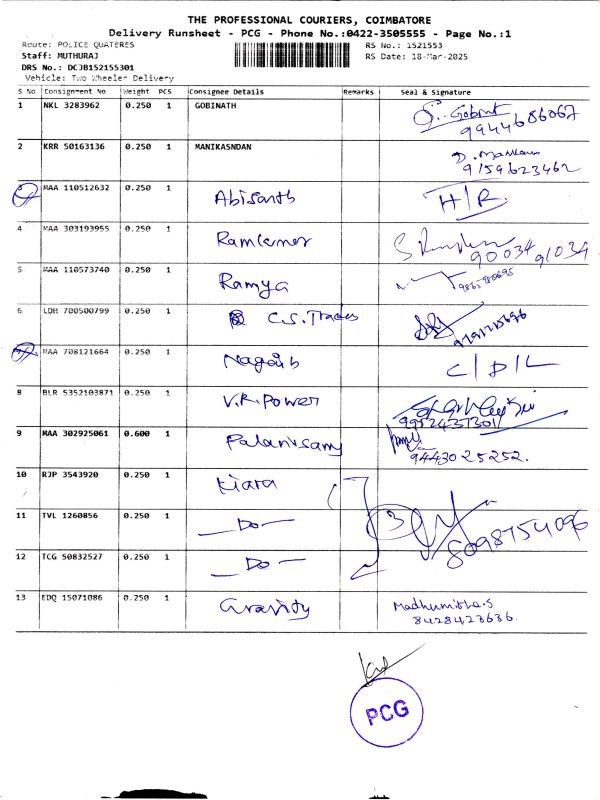 THE PROFESSIONAL COURIERS, COIMBATORE
Delivery Runsheet - PCG - Phone No.:0422-3505555 - Page No.:1
Route: POLICE QUATERES RS No.: 1521553
Staff: MUTHURAJ RS Date: 18-Mar-2025
DRS No.: DCJB152155301
Vehicle: Two Wheeler Delivery
S No Consignment No Weight PCS Consignee Details Remarks Seal & Signature
1 NKL 3283962 0.250 1 GOBINATH
9944686067
2 KRR 50163136 0.250 1 MANIKASNDAN
9159623462
3 MAA 110512632 0.250 1 Abisanth H/R
4 MAA 303193955 0.250 1 Ramkumer
90034 91034
5 MAA 110573740 0.250 1 Ramya
6 LDH 700500799 0.250 1 C.S. Trades
7 MAA 708121664 0.250 1 C/D/L
8 BLR 5352103871 0.250 1 V.R. Power
9 MAA 302925061 0.600 1 Palanisamy
9443025252.
10 RJP 3543920 0.250 1 Kiara
11 TVL 1260856 0.250 1 — Do — 3
8098754096
12 TCG 50832527 0.250 1 — Do —
13 EDQ 15071086 0.250 1 Gravity Madhumitha.S
8428423636.
PCG